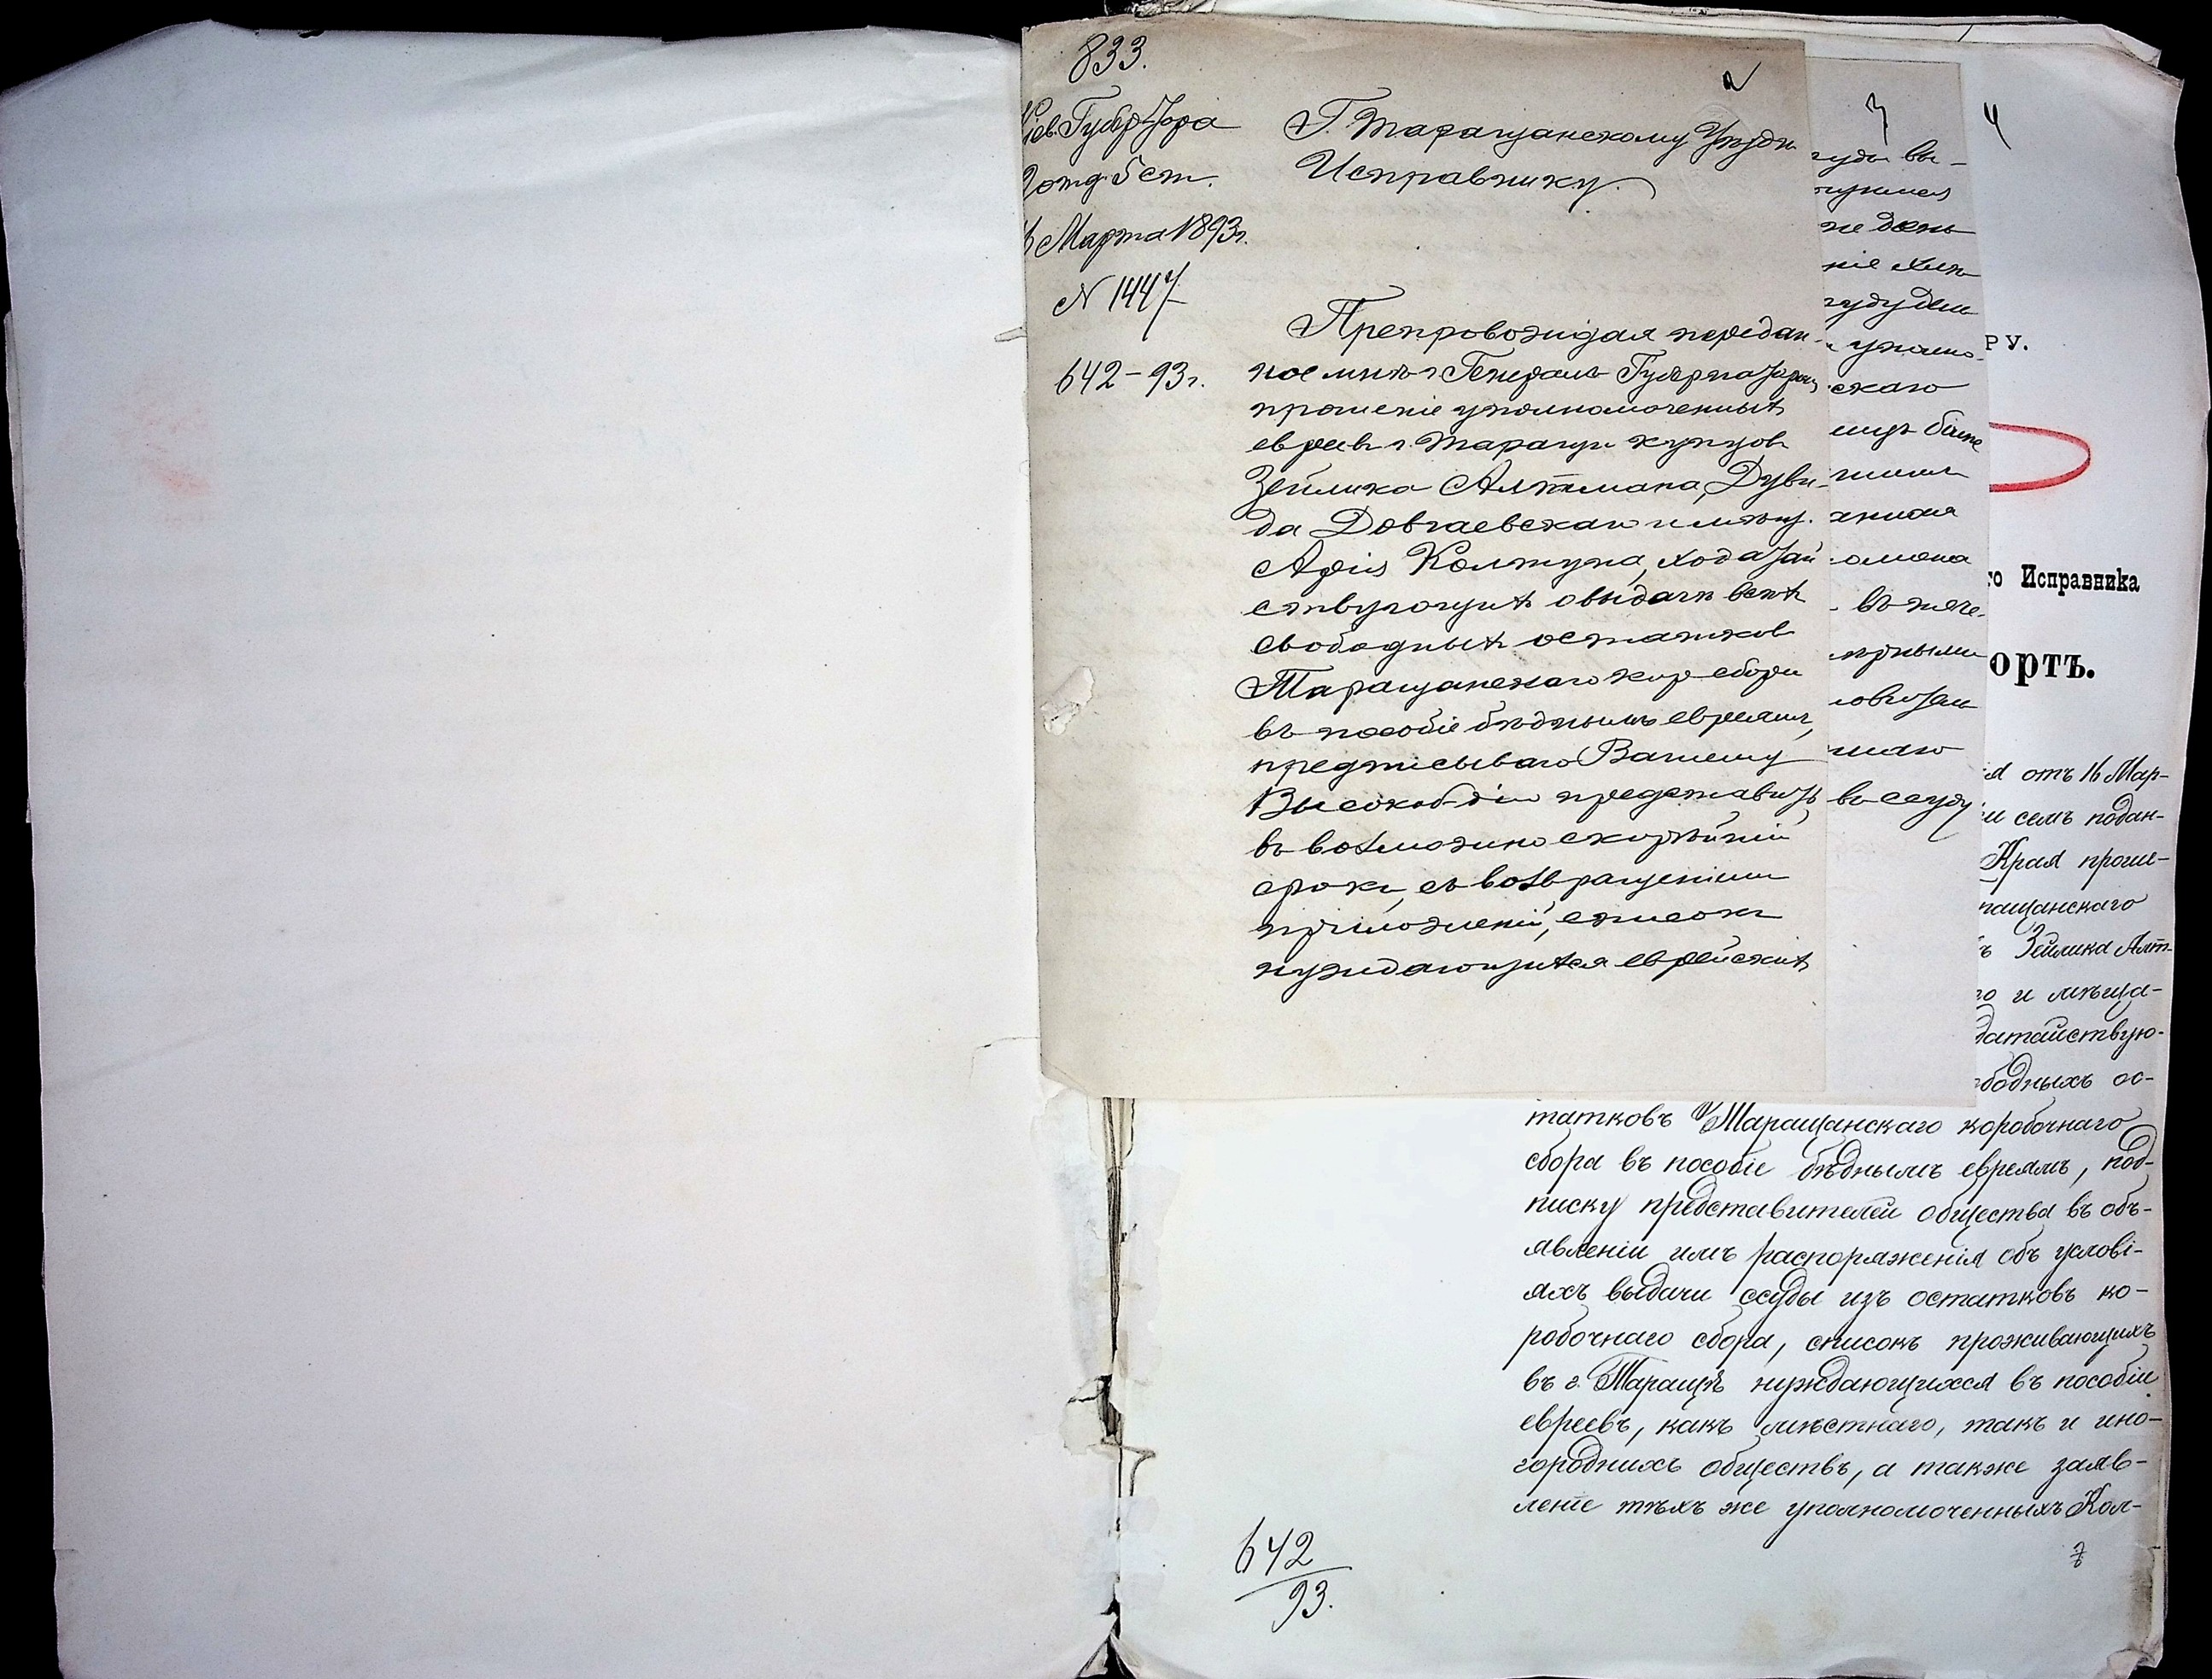 833.
Кіев. Губер-тора
2 отд. 5 ст.
16 Марта 1893 г.
N 1447
642-93 г.
2
Г. Таращанскому Уѣздн.
Исправнику.
Препровождая передан-
ное мнѣ г. Генералъ Губернаторомъ
прошеніе уполномоченныхъ
евреевъ г. Таращи купцовъ
Зейлика Алтмана, Дуви-
да Довгаевскаго и мѣщ.
Арія Колтуна, ходатай
ствующихъ о выдачѣ всѣхъ
свободныхъ остатковъ
Таращанскаго кор. сбора
въ пособіе бѣднымъ евреямъ,
предписываю Вашему
Высокоб-дію представить,
въ возможно скорѣйшій
срокъ, съ возвращеніемъ
приложеній, списокъ
нуждающихся еврейскихъ
3
вы-
не день
скаго
въ тече-
въ ссуду
4
РУ.
го Исправника
ортъ.
отъ 16 Мар-
семъ подан-
Края проше-
ращанскаго
Зейлика Алт-
го и мѣща-
датайствую-
бодныхъ ос-
татковъ Таращанскаго коробочнаго
сбора въ пособіе бѣднымъ евреямъ, под-
писку представителей общества въ объ-
явленіи имъ распоряженія объ услові-
яхъ выдачи ссуды изъ остатковъ ко-
робочнаго сбора, списокъ проживающихъ
въ г. Таращѣ нуждающихся въ пособіи
евреевъ, какъ мѣстнаго, такъ и ино-
городнихъ обществъ, а также заяв-
леніе тѣхъ же уполномоченныхъ Кол-
642
93.